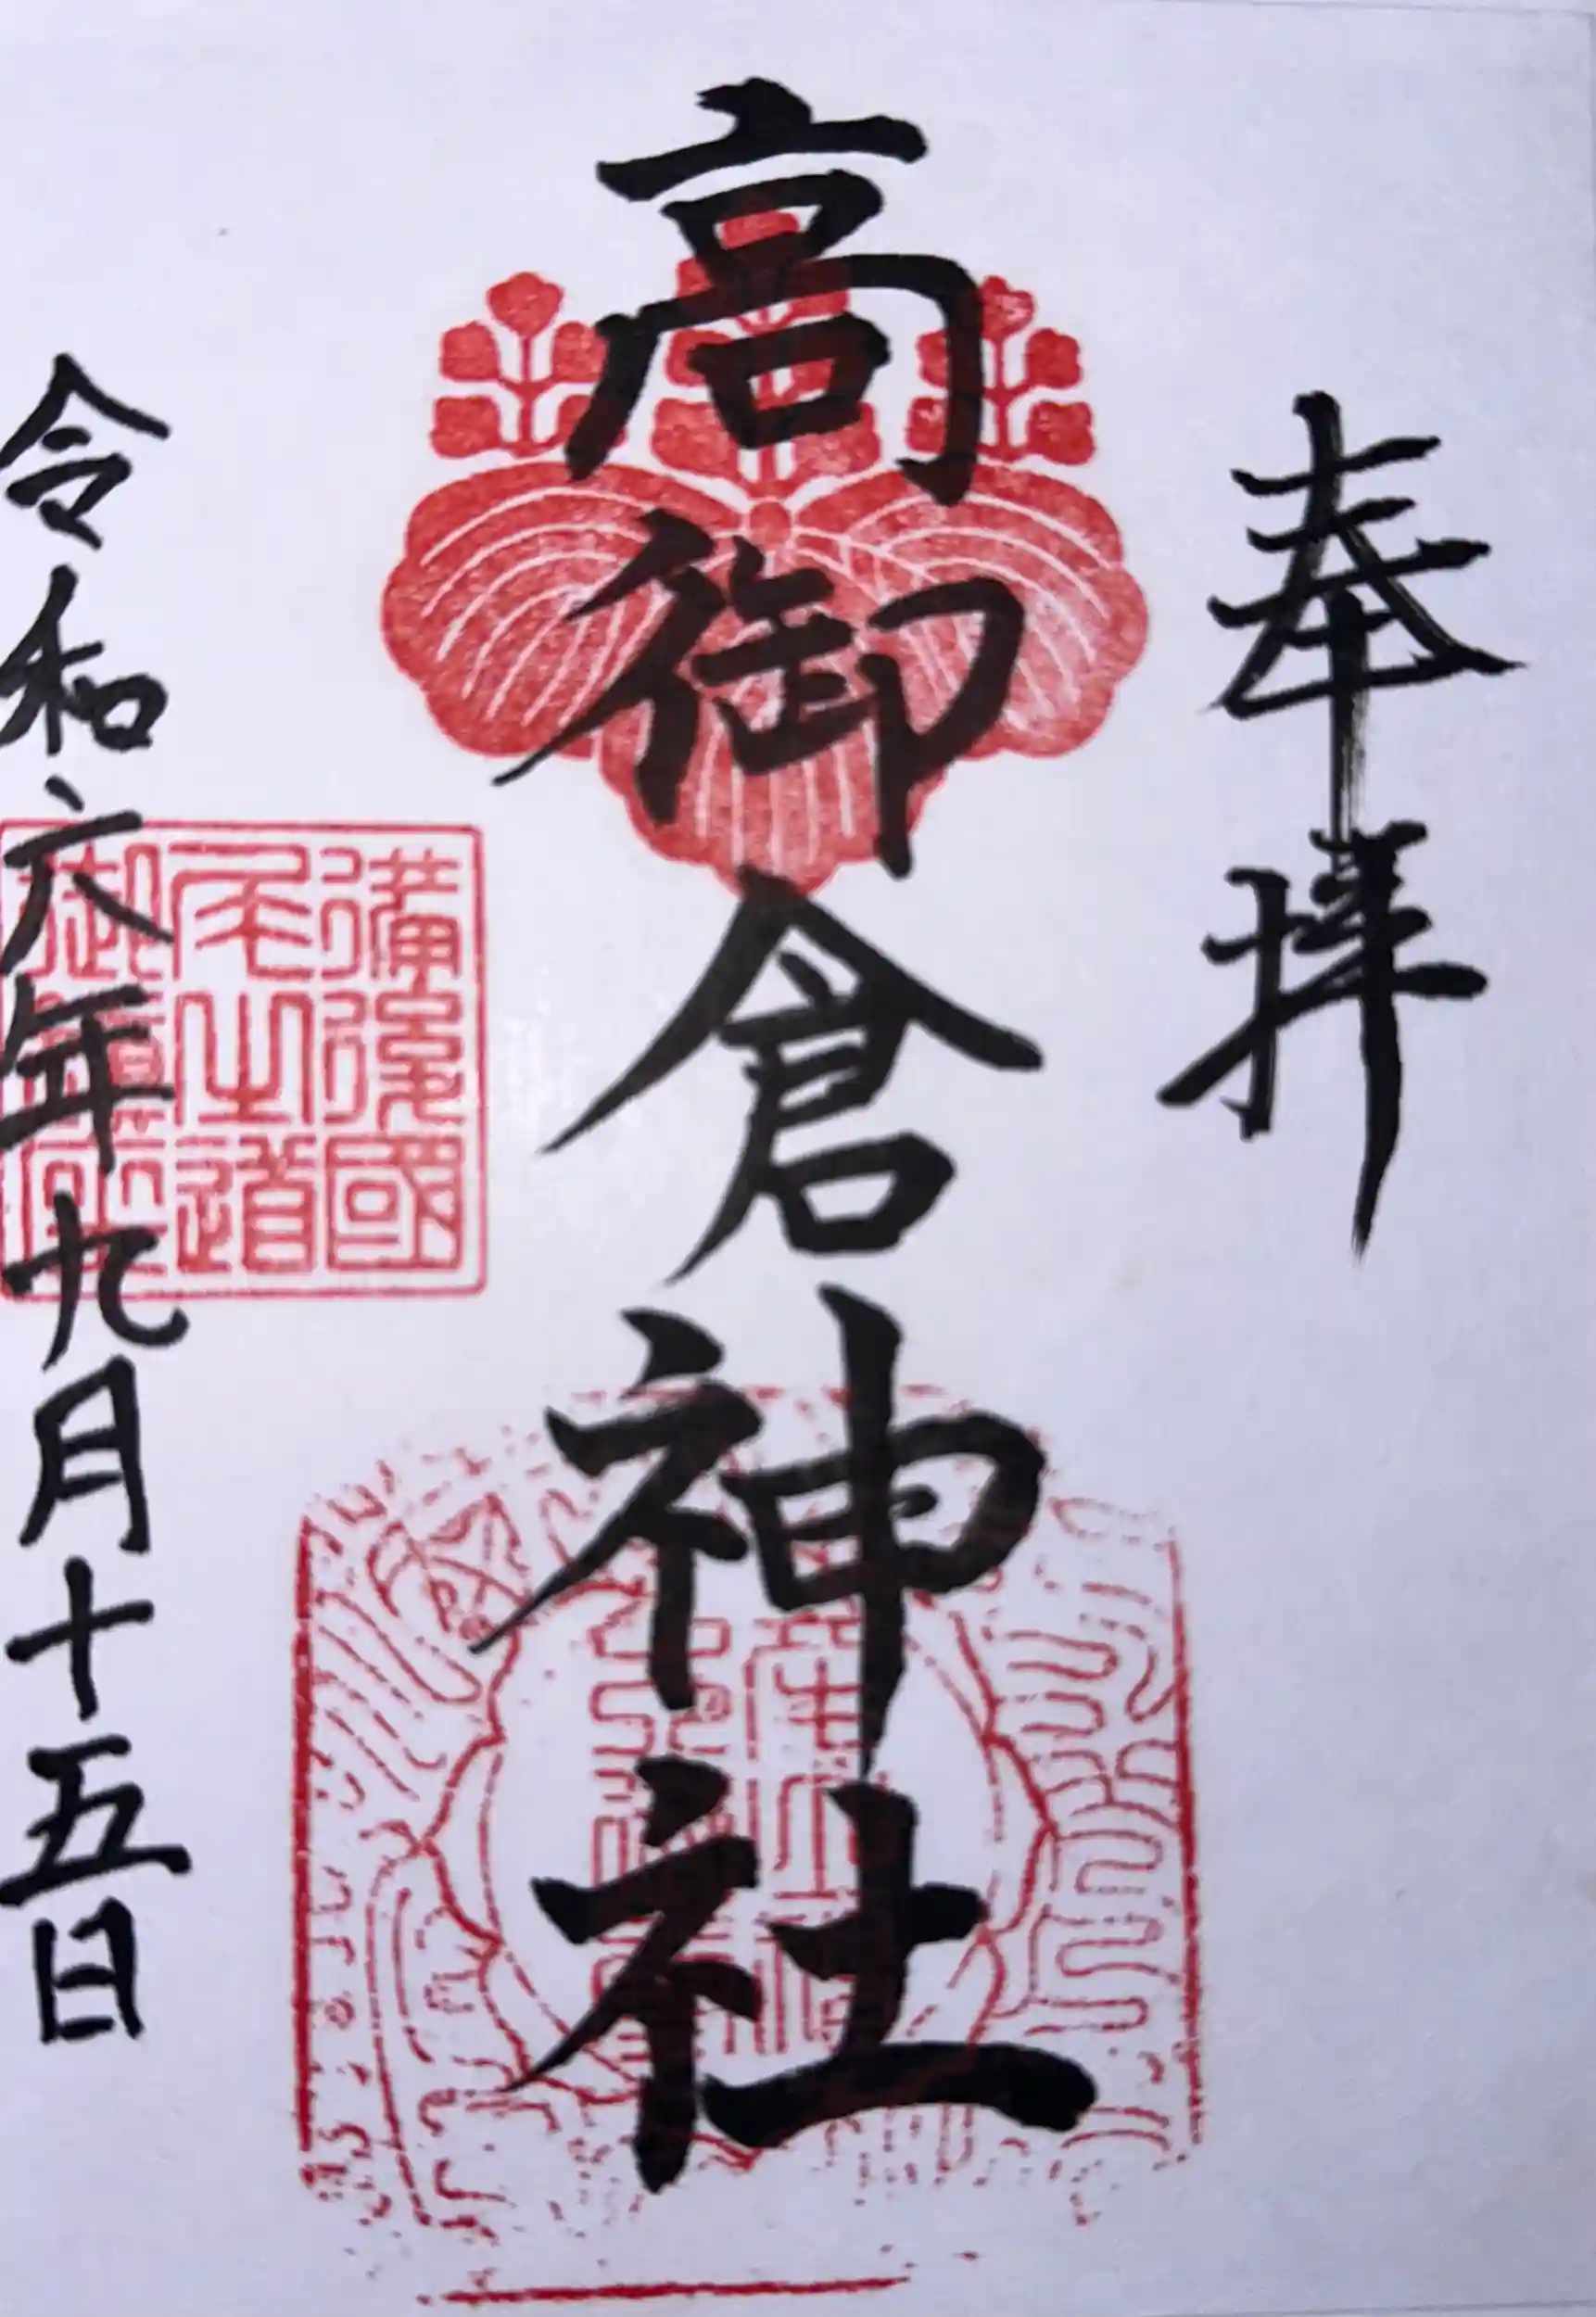 奉拝
高御倉神社
備後國
尾之道
御鎮座
令和六年九月十五日